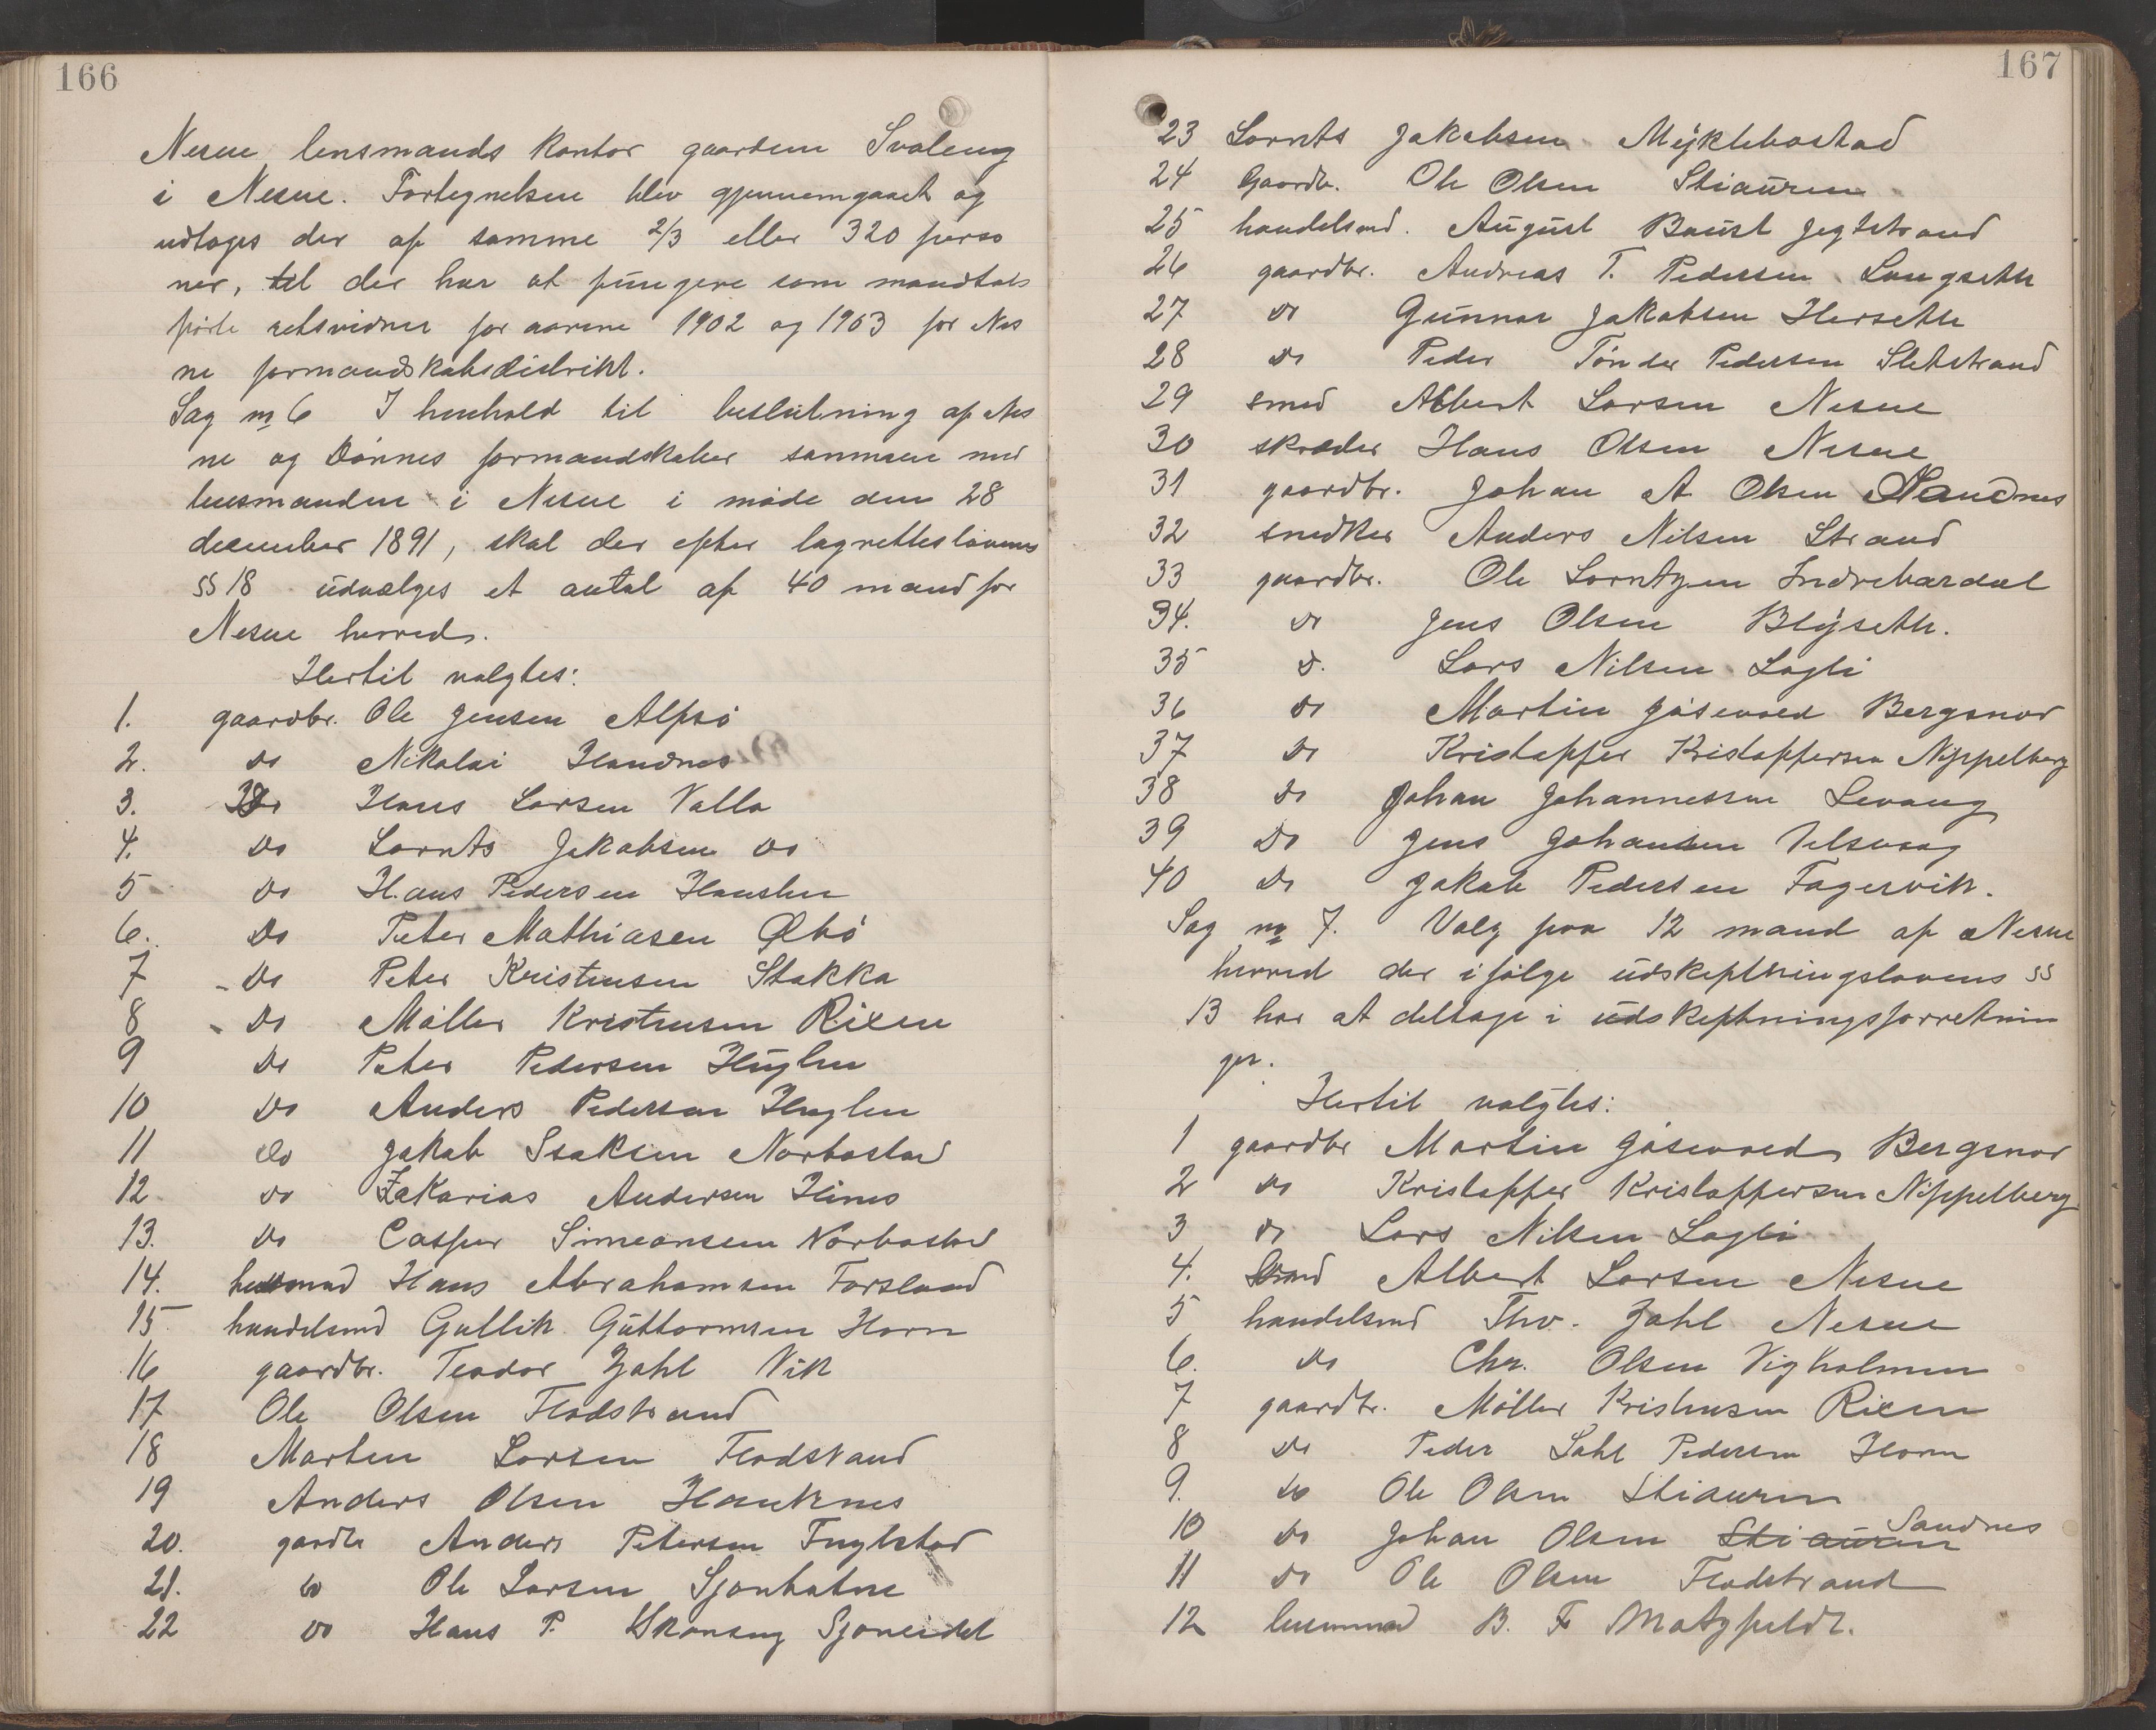 166
Nesne lensmands kontor gaarden Svaleng
i Nesne. Fortegnelsen blev gjennemgaaet og
udtoges der af samme 2/3 eller 320 perso
ner, til der har at fungere som mandtals
førte retsvidner for aarene 1902 og 1903 for Nes
ne formandskabsdistrikt.
Sag no 6 I henhold til beslutning af Nes
ne og Dønnes formandskaber sammen med
lensmanden i Nesne i møde den 28
december 1891, skal der efter lagretteslovens
§§ 18 udvælges et antal af 40 mand for
Nesne herred.
Hertil valgtes:
1. gaardbr. Ole Jensen Alfsø
2. Do Nikolai Handnes
3. Do Hans Larsen Valla
4. Do Lornts Jakobsen Do
5 Do Hans Pedersen Hauslen
6. Do Peter Mathiasen Øbø
7 Do Peter Kristensen Stokka
8 Do Møller Kristensen Rixen
9 Do Peter Pedersen Huglen
10 Do Anders Pedersen Huglen
11 Do Jakob Isaksen Norbostad
12 Do Zakarias Andersen Hines
13. Do Casper Simeonsen Norbostad
14. husmand Hans Abrahamsen Forsland
15 handelsmd Gullik Guttormsen Horn
16 gaardbr. Teodor Zahl Vik
17 Ole Olsen Flodstrand
18 Morten Larsen Flodstrand
19 Anders Olsen Hauknes
20. gardbr Anders Petersen Fuglstad
21. Do Ole Larsen Sjonbotne
22 Do Hans P. Skonseng Sjoneidet
167
23 Lornts Jakobsen Myklebostad
24 Gaardbr. Ole Olsen Stiauren
25 handelsmd. August Baust Jegtstrand
26 gaardbr. Andreas T. Pedersen Langseth
27 Do Gunnar Jakobsen Herseth
28 Do Peder Tønder Pedersen Sletstrand
29 smed Albert Larsen Nesne
30 skræder Hans Olsen Nesne
31 gaardbr. Johan A Olsen Sandnes
32 snedker Anders Nilsen Strand
33 gaardbr. Ole Lorntzen Indrebardal
34. Do Jens Olsen Blyseth.
35 D. Lars Nilsen Lagli
36 Do Martin Gåsevoed Bergsnov
37 Do Kristoffer Kristoffersen Nippelberg
38 Do Johan Johannessen Levang
39 Do Jens Johansen Velsvaag
40 Do Jakob Pedersen Fagervik.
Sag no 7. Valg paa 12 mand af Nesne
herred der ifølge udskiftningslovens §§
13 har at deltage i udskiftningsforretnin
ger.
Hertil valgtes:
1 gaardbr Martin Gåsevoed Bergsnov
2 Do Kristoffer Kristoffersen Nippelberg
3 Do Lars Nilsen Lagli
4. Smed Albert Larsen Nesne
5 handelsmd Thv. Zahl Nesne
6. Do Chr. Olsen Vigholmen
7 gaardbr. Møller Kristensen Rixen
8 Do Peder Dahl Pedersen Horn
9. Do Ole Olsen Stiauren
10 Do Johan Olsen Stiauren Sandnes
11 Do Ole Olsen Flodstrand
12 lensmand B. F Motzfeldt.